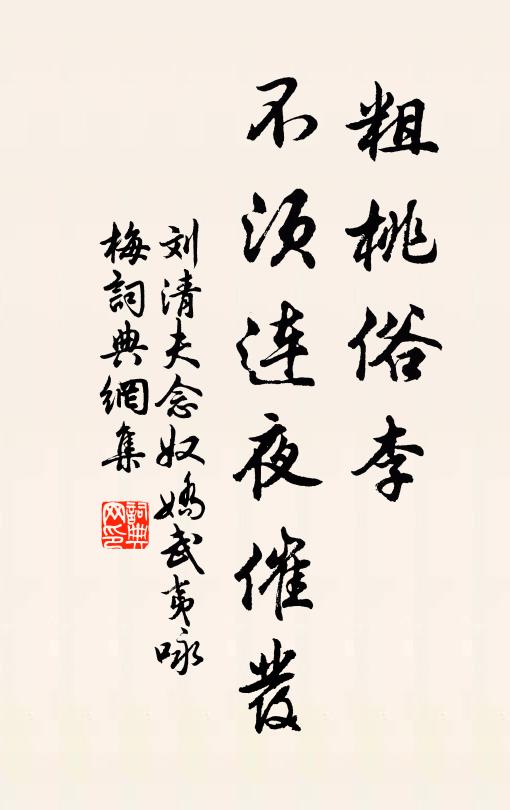 粗桃俗李
不须连夜催發
刘清夫念奴嬌武夷咏
梅詞典網集
詞典
网印